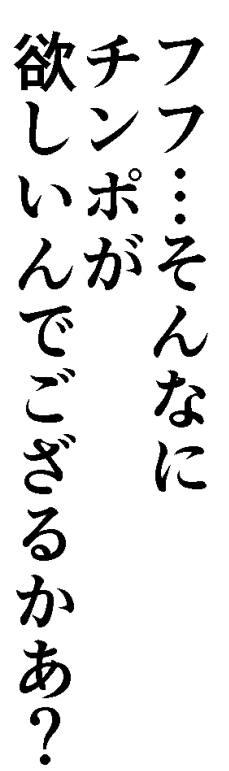 フフ…そんなに
チンポが
欲しいんでござるかあ？